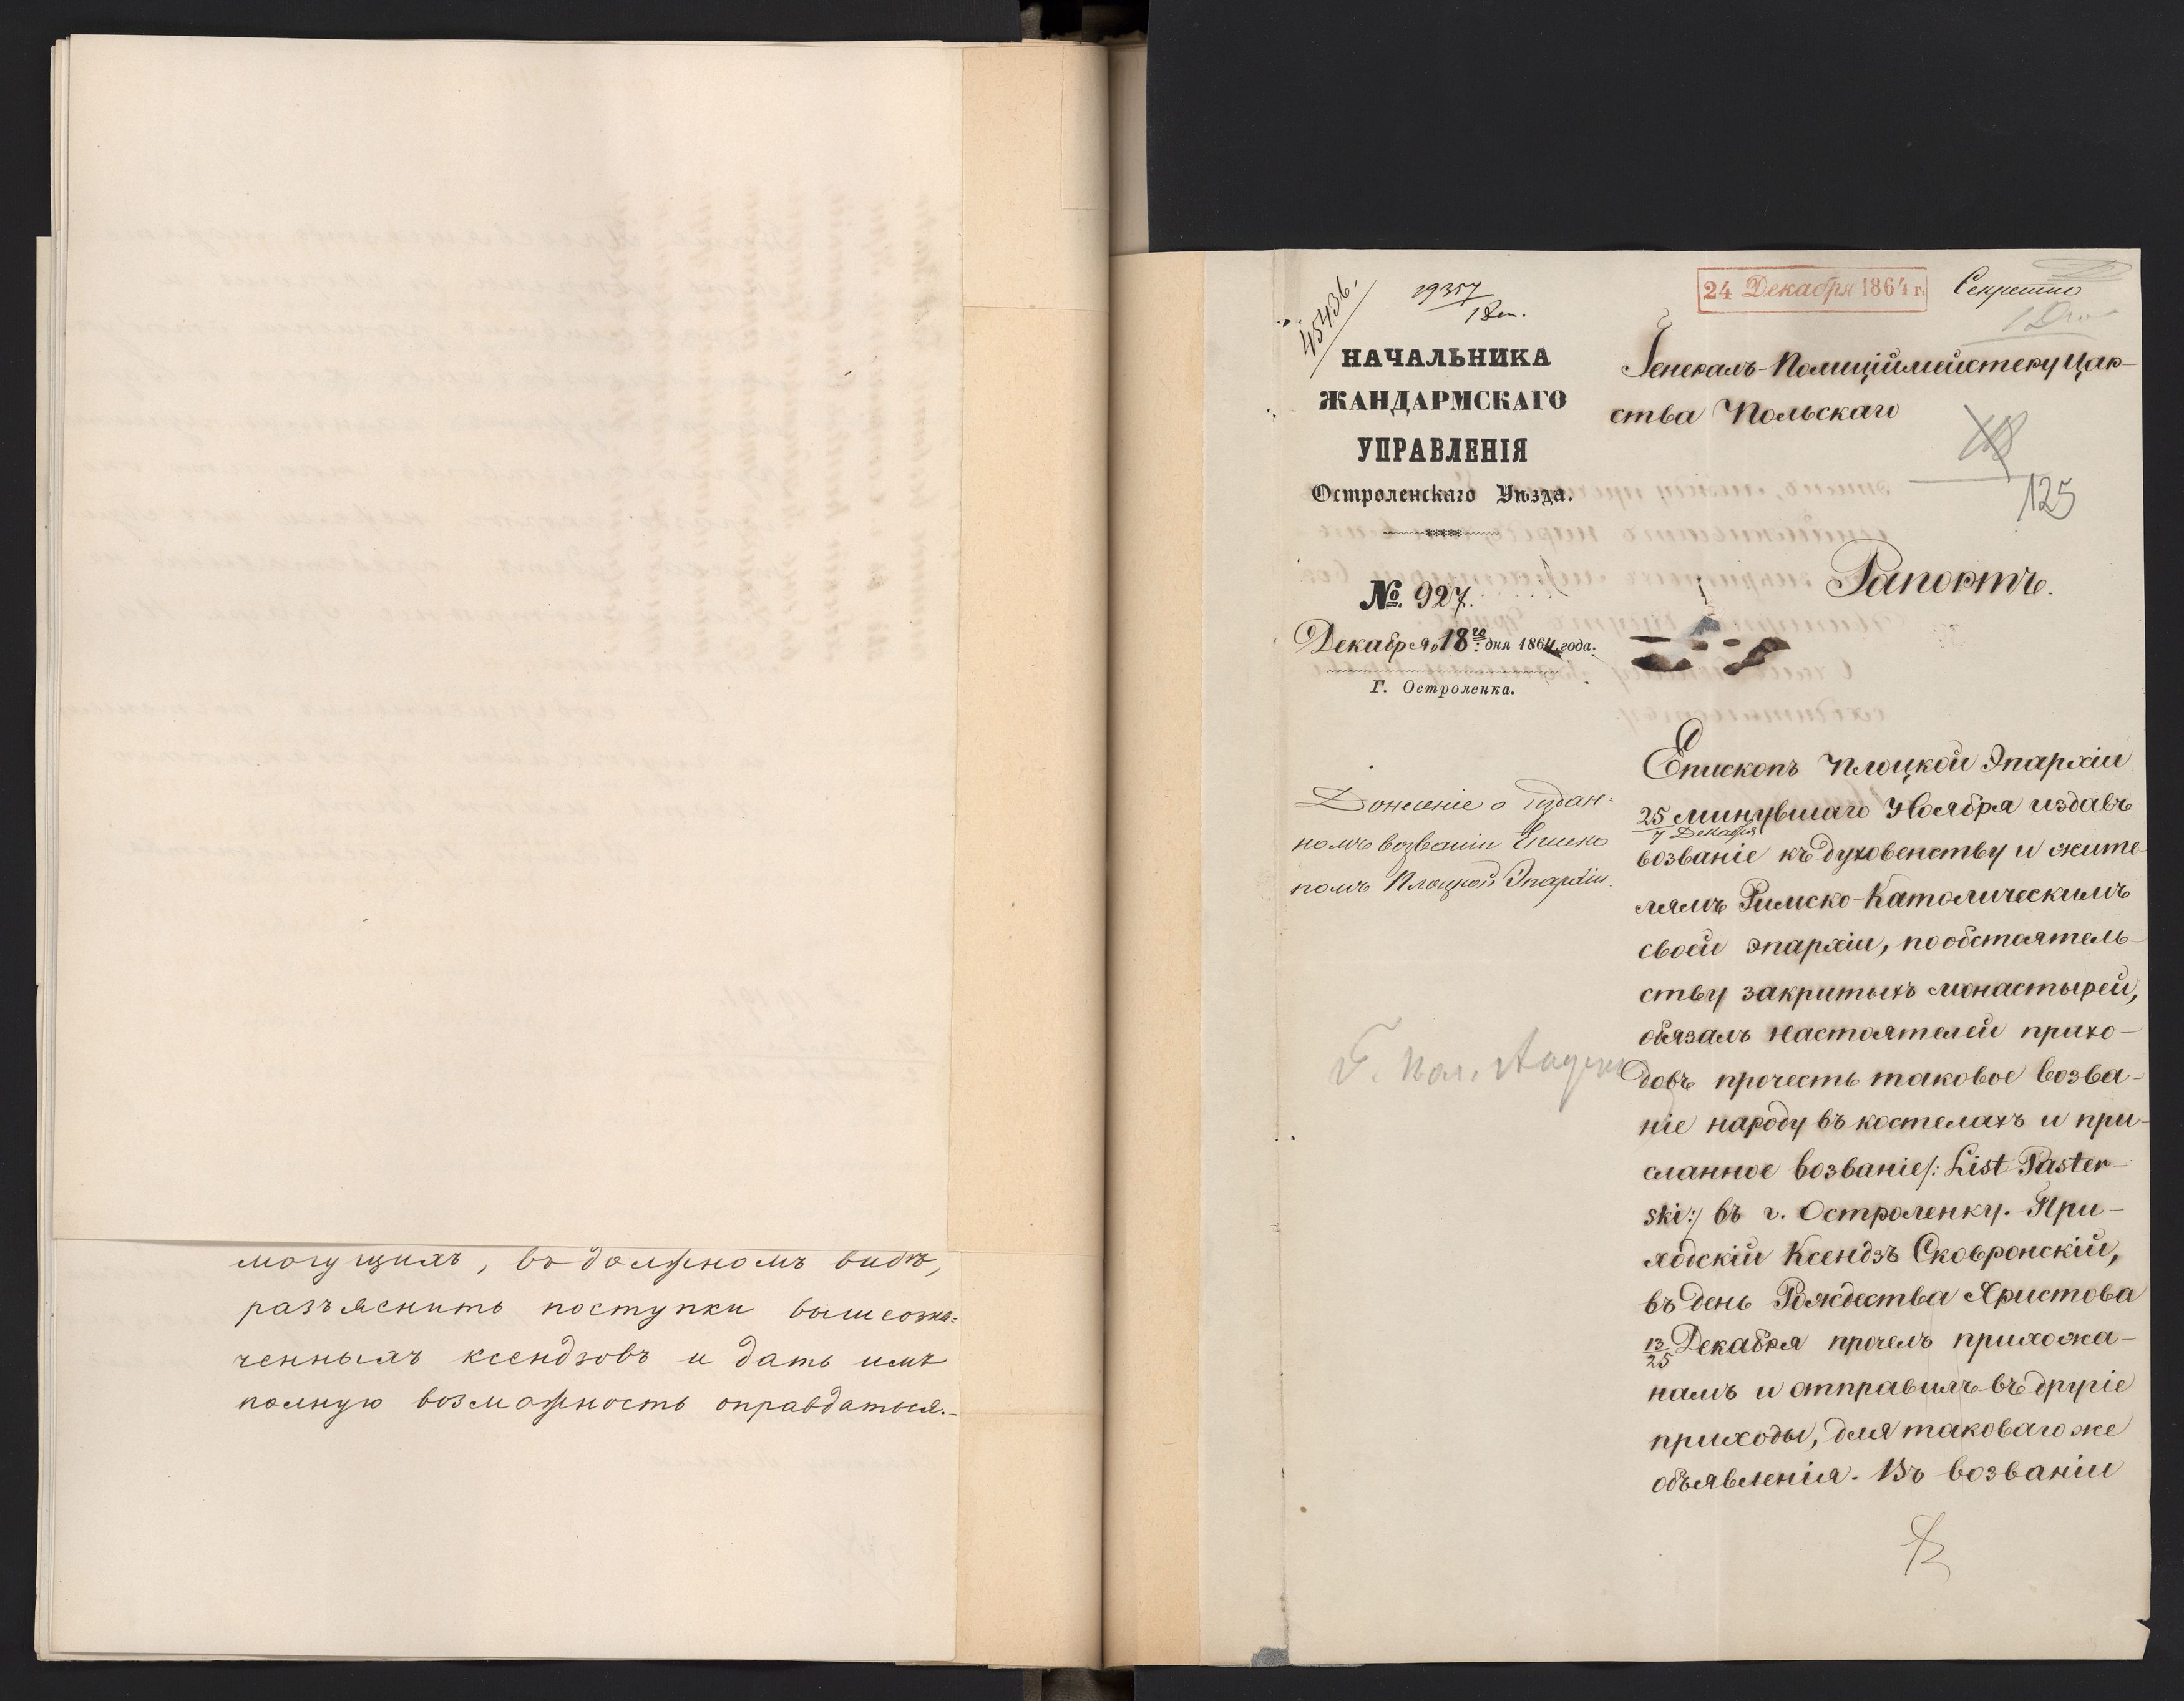 могущихъ, въ должномъ видѣ,
разъяснить поступки вышеозна=
ченныхъ ксендзовъ и дать имъ
полную возможность оправдаться.-
45436.
19357
18
24 Декабря 1864 г.
Секретно
НАЧАЛЬНИКА
ЖАНДАРМСКАГО
УПРАВЛЕНІЯ
Остроленскаго Уѣзда.
№. 927.
Декабря „18го: дня 1864 года.
Г. Остроленка.
Генералъ-Полиціймейстеру Цар-
ства Польскаго
125
Рапортъ.
Донесеніе о издан=
номъ воззваніи Еписко
помъ Плоцкой Эпархіи.
Г. Пол.
Епископъ Плоцкой Эпархіи
25 минувшаго Ноября издавъ
7 Декабря
возваніе къ духовенству и жите-
лямъ Римско-Католическимъ
своей эпархіи, по обстоятель-
ству закритыхъ монастырей,
обязалъ настоятелей прихо-
довъ прочесть таковое возва-
ніе народу въ костелахъ и при-
сланное возваніе /: List Paster-
ski:/ въ г. Остроленку. При-
ходскій Ксендзъ Сковронскій,
въ день Рождества Христова
13/25 Декабря прочелъ прихожа-
намъ и отправилъ въ другіе
приходы, для таковаго же
объявленія. Въ возваніи